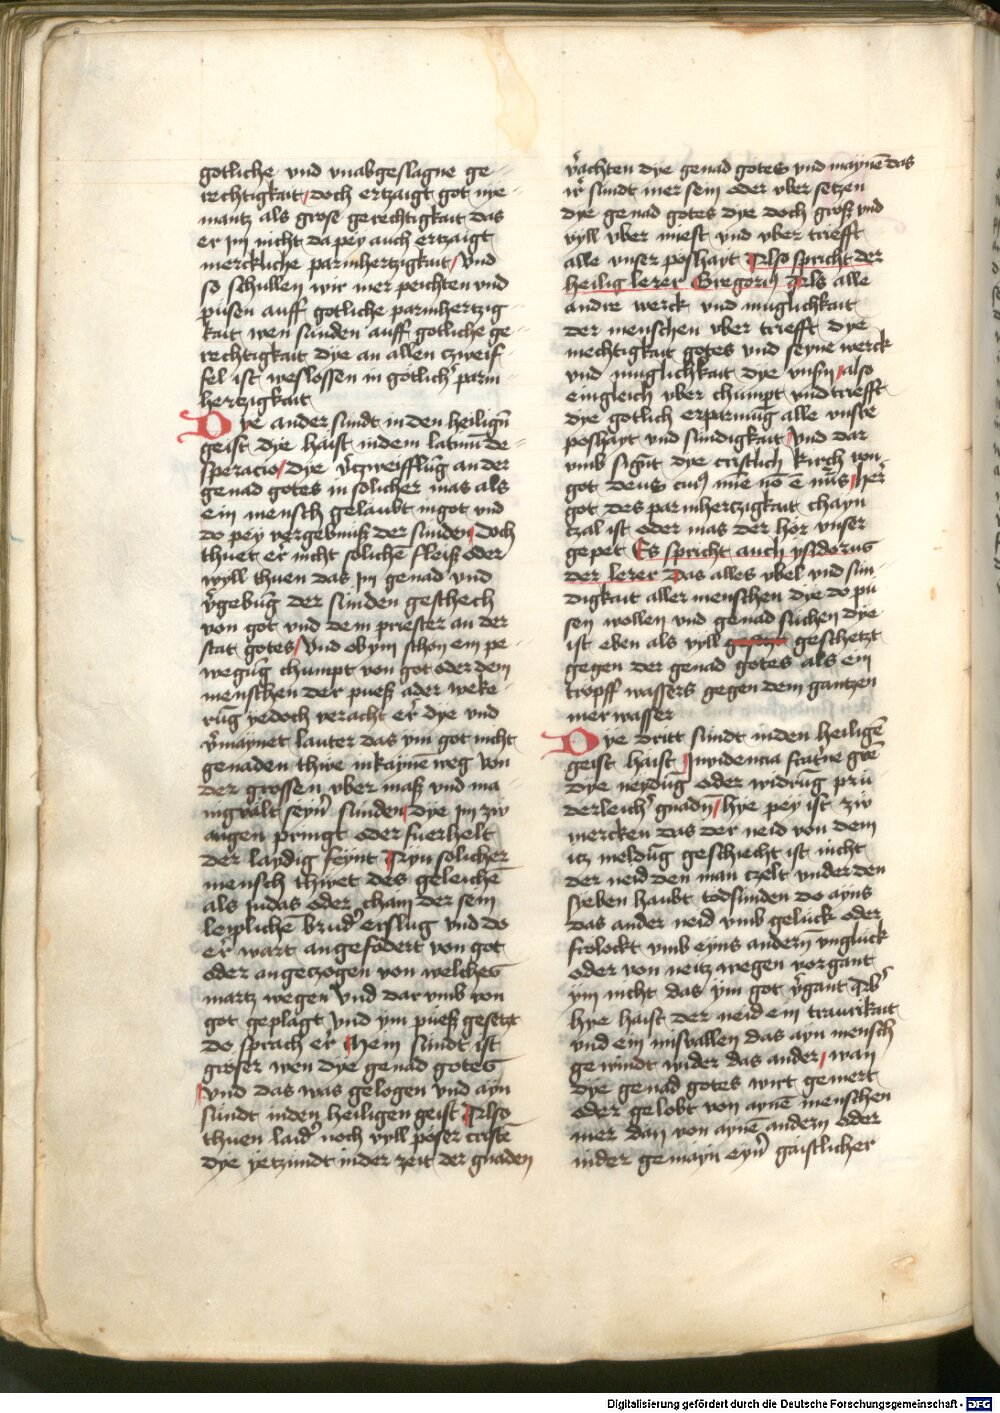 gotliche vnd vnabgeslagne ge-
rechtigkait / doch ertzaigt got nye-
mantz als grose gerechtigkait das
er jm nicht da pey auch ertzaigt
merckliche parmhertzigkait / Vnd
so schullen wir mer peichten vnd
püsen auff gotliche parmhertzig
kait wen sünden auff gotliche ge-
rechtigkait dye an allen czweif-
fel ist weslossen in gotlich' parm-
hertzigkait
Dye ander sündt in den heilign̄
geist dye haist in dem latinn̄ de-
speracio / dye v'tzweifflūg an der
genad gotes in solicher mas als
ein mensch gelaubt in got vnd
do pey vergebnüß der sünden / doch
thuet er nicht solichē fleiß oder
wyll thuen das jm genad vnd
v'gebūg der sünden geschech
von got vnd dem priester an der
stat gotes / Vnd ob ym schon ein pe-
wegūg chumpt von got oder dem
menschen der pueß ader weke-
rūg yedoch veracht er dye vnd
v'maynet lauter das ym got nicht
genaden thwe in kayne weg von
der grossen vber maß vnd ma-
nigualt seyn' sünden / dye jm zw
augen pringt oder fuerhelt
der laydig feynt Ayn solicher
mensch thwet des geleichē
als judas oder cham der sein
leiplichē brud' erslug vnd do
er wart angefodert von got
oder angeczogen von welches
martz wegen Vnd dar vmb von
got geplagt Vnd ym pueß gesetzt
do sprach er Mein sündt ist
gröser wen dye genad gotes
Vnd das was gelogen vnd ayn
sündt in den heiligen geist Also
thuen laid' noch vyll pöser cristē
dye yetzundt in der zeit der gnaden
v'achten dye genad gotes vnd maynē das
ir sündt mer sein oder vber setzen
dye genad gotes dye doch groß vnd
vyll vber miest vnd vber triefft
alle vnser poshayt Also spricht der
heilig lerer Gregori9 Als alle
andre werck vnd muglichkait
der menschen vber trefft dye
mechtigkait gotes vnd seyne werck
vnd muglichkait dye vnsn / also
ein gleich vber chumpt vnd trefft
dye gotlich erparmūg alle vnsre
poshayt vnd sündigkait / Vnd dar
vmb signt dye cristlich kirch von
got Deus cui9 mīe nō ē nūs / her'
got des parmherczigkait chayn
tzal ist oder mas der hör vnser
gepet Es spricht auch ysidorus
der lerer Das alles vbel vnd sün-
digkait aller menschen dye do pü
sen wollen vnd genad suchen dye
ist eben als vyll geschetzt
gegen der genad gotes als ein
tropff wassers gegen dem gantzen
mer wasser
Dye dritt sündt in den heiligē
geist haist Inuidencia frat'ne grē
dye neydūg oder widrūg prü
derleich' gnadn̄ / Hye pey ist zw
mercken das der neid von dem
itz meldūg geschiecht ist nicht
der neid den man czelt vnder den
sieben haubt todsünden do ayns
das ander neid vmb gelück oder
frolockt vmb eyns andern̄ vnglück
oder von neitz wegen vorgant
ym nicht das ym got v'gant
hye haist der neid ein traurikait
vnd ein misuallen das ayn mensch
gewindt wider das ander / wan
dye genad gotes wirt gemert
oder gelobt von aynē menschen
mer dan von aynē andern oder
in der gemayn eyn' gaistlicher
Digitalisierung gefördert durch die Deutsche Forschungsgemeinschaft - DFG